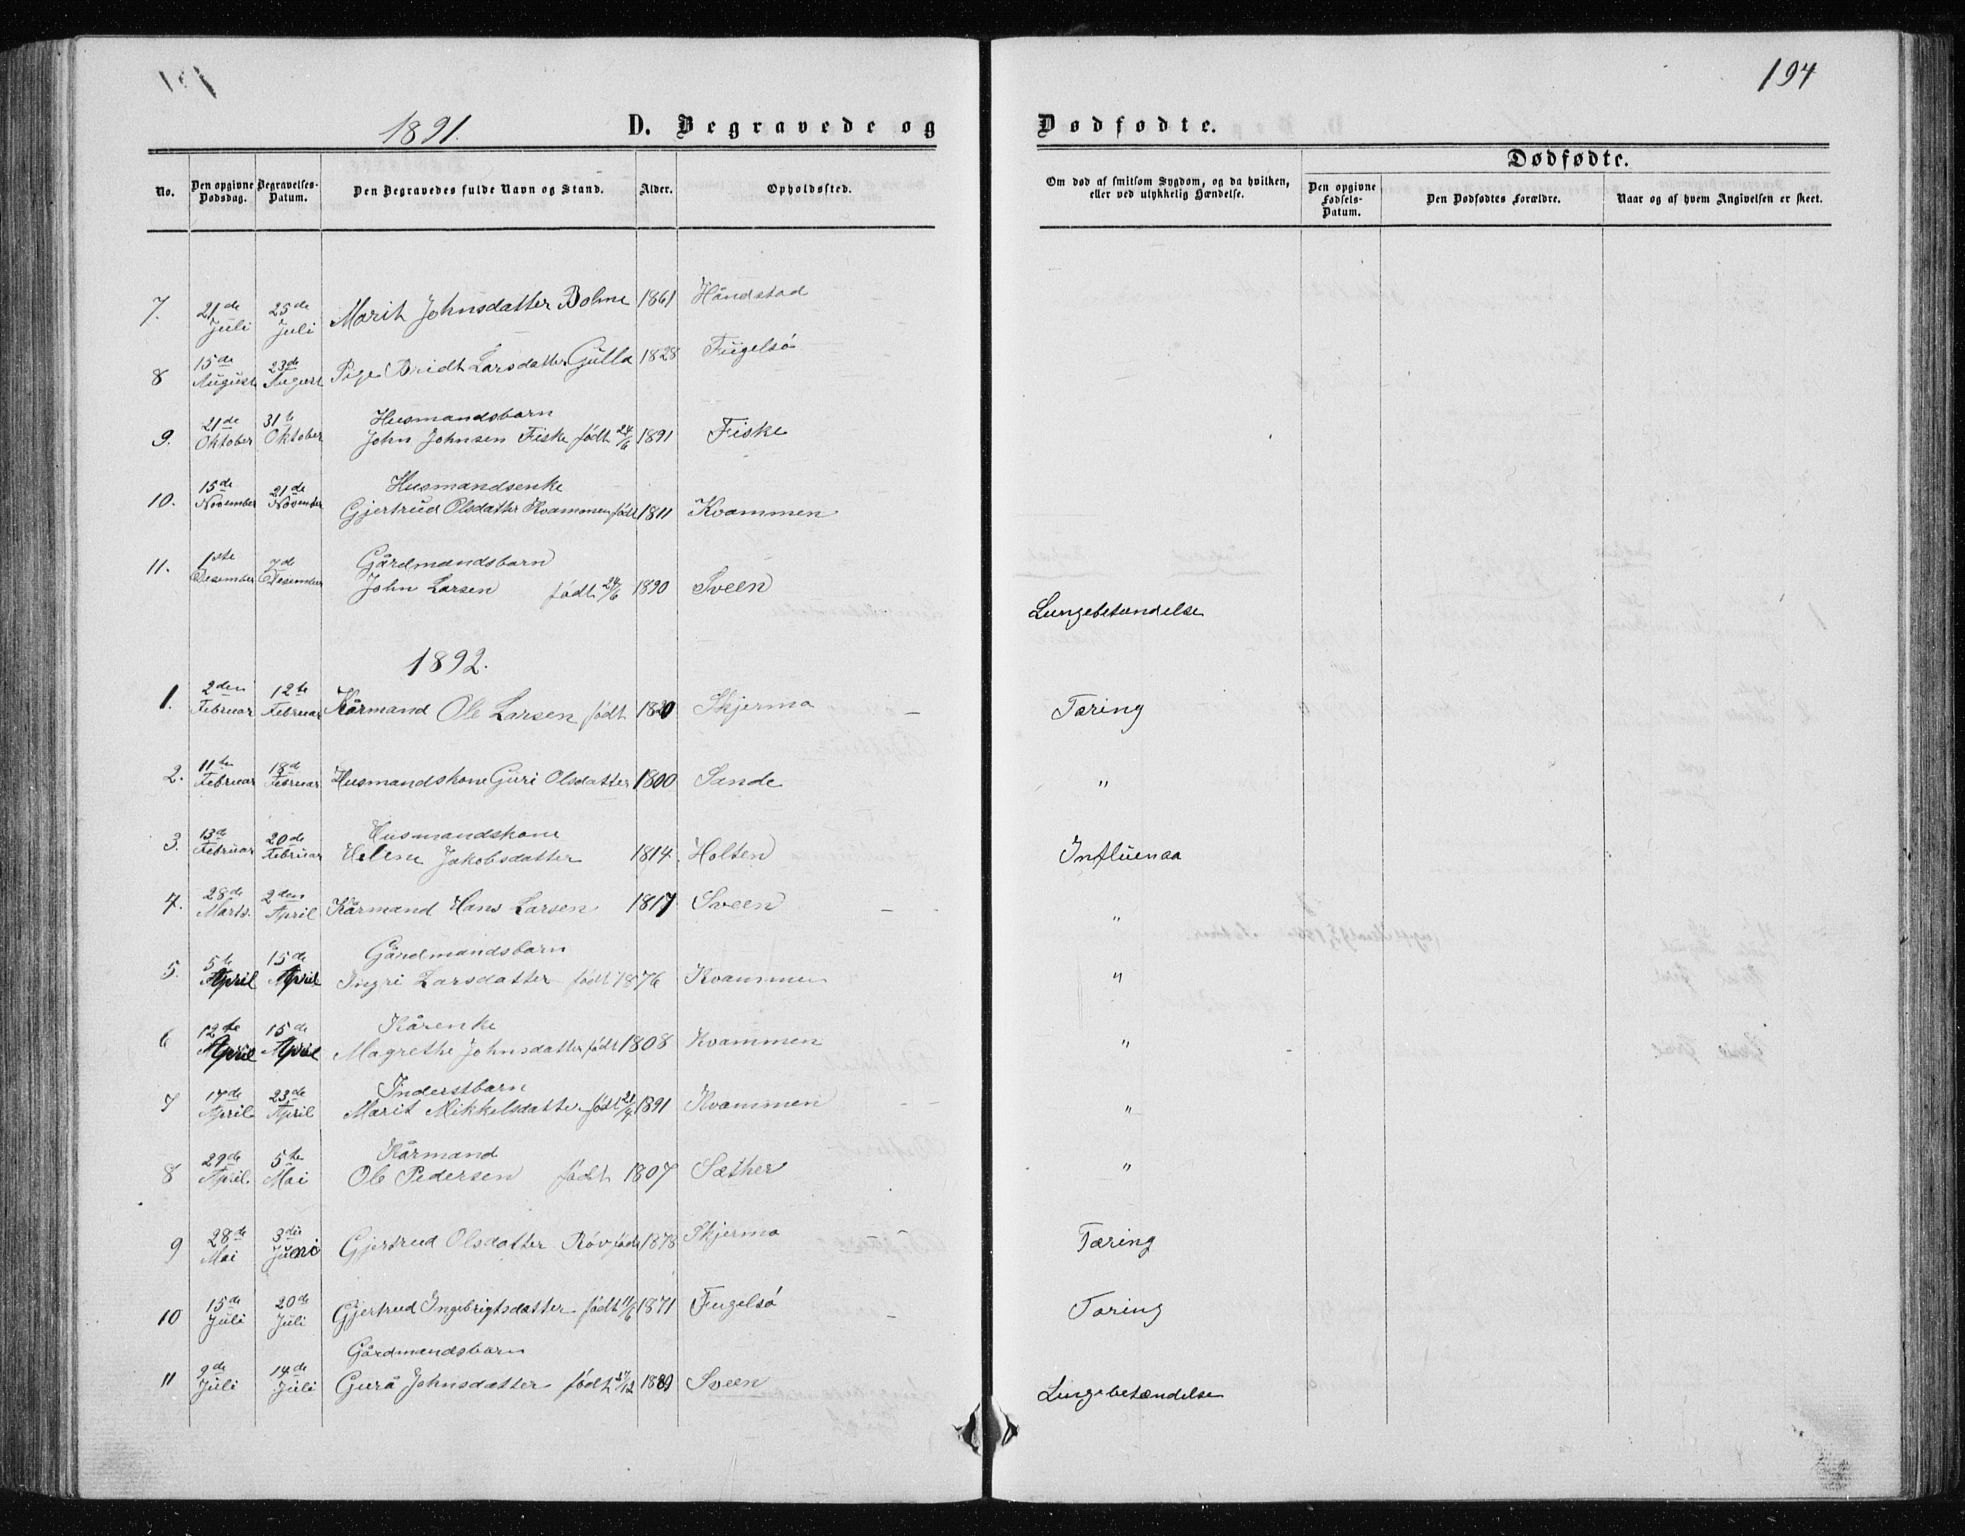 194
1891. D. Begravede og Dødfødte.
Dødfødte.
No. Den opgivne Dødsdag. Begravelses-Datum. Den Begravedes fulde Navn og Stand. Alder. Opholdssted. Om død af smitsom Sygdom, og da hvilken, eller ved ulykkelig Hændelse. Den opgivne Fødsels-Datum. Den Dødfødtes Forældre. Naar og af hvem Angivelsen er skeet.
7. 21de Juli 25de Juli Marit Johnsdatter Bolme 1861 Håndstad
8 15de August 23de August Pige Bridt Larsdatter Gulla 1828 Fugelsø
9. 21de Oktober 31te Oktober Husmandsbarn
John Johnsen Fiske født 24/6 1891 Fiske
10. 15de November 21de November Husmandsenke
Gjertrud Olsdatter Kvammen født 1811 Kvammen
11. 1ste Desember 7de Desember Gårdmandsbarn
John Larsen født 24/6 1890 Sveen Lungebetændelse
1892.
1. 2den Februar 12te Februar Kårmand Ole Larsen født 1820 Skjermo Tæring
2. 11te Februar 18de Februar Husmandskone Guri Olsdatter 1800 Sande "
3. 13de Februar 20de Februar Husmandskone
Helene Jakobsdatter 1814. Holten Influensa
4. 28de Marts. 2den April Kårmand Hans Larsen 1817 Sveen "
5. 5te April 15de April Gårdmandsbarn
Ingri Larsdatter født 1876 Kvammen "
6 12te April 15de April Kårenke
Magrethe Johnsdatter født 1808 Kvammen "
7 17de April 23de April Inderstbarn
Marit Mikkelsdatter født 21/4 1891 Kvammen "
8 29de April. 5te Mai Kårmand
Ole Pedersen født 1807 Sæther "
9 28de Mai 3die Juni Gjertrud Olsdatter Røv født 1878 Skjermo Tæring
10 15de Juli 20de Juli Gjertrud Ingebrigtsdatter født 11/6 1871 Fugelsø Tæring
11 9de Juli 14de Juli Gårdmandsbarn
Gurå Johnsdatter født 27/12 1889 Sveen Lungebetændelse